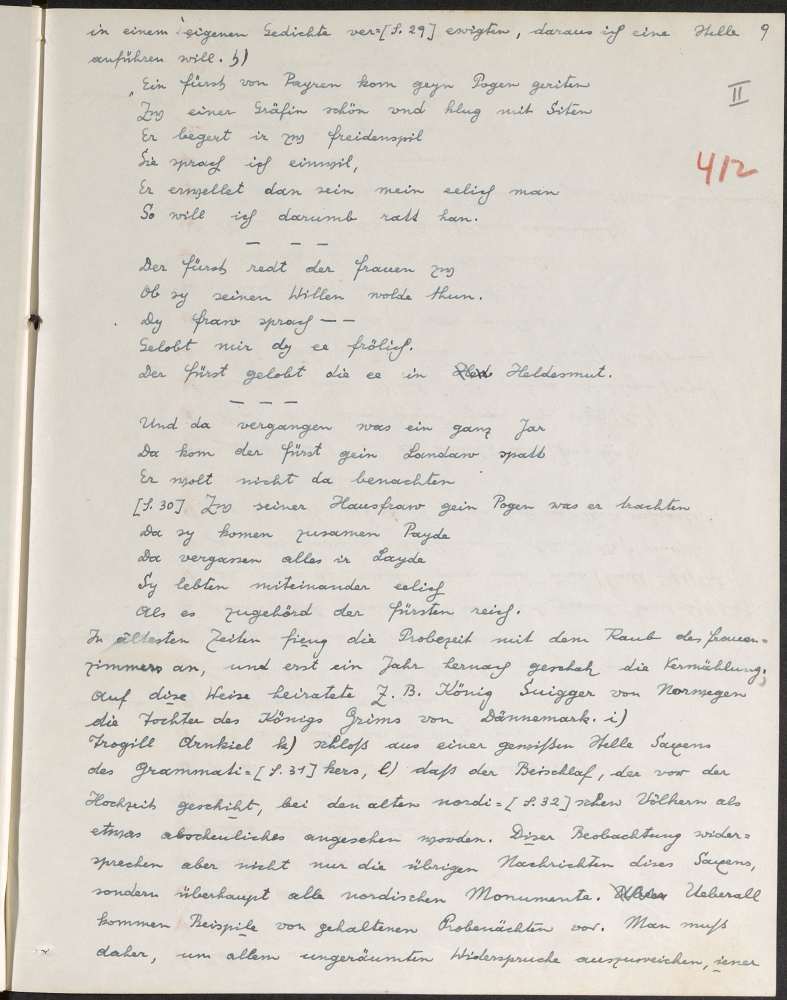 in einem eigenen Gedichte ver=[S. 29] ewigten, daraus ich eine Stelle 9
anführen will. h)
II
„Ein fürst von Payren kom geyn Pogen geriten
Zw einer Gräfin schön vnd klug mit Siten
Er begert ir zw freidenspil
412
Sie sprach ich einwil,
Er erwellet dan sein mein eelich man
So will ich darumb ratt han.
— — —
Der fürst redt der frauen zw
Ob sy seinen Willen wolde thun.
Dy fraw sprach — —
Gelobt mir dy ee frölich.
Der fürst gelobt die ee in Heldesmut.
— — —
Und da vergangen was ein ganz Jar
Da kom der fürst gein Landaw spatt
Er wolt nicht da benachten
[S. 30] Zw seiner Hausfraw gein Pogen was er trachten
Da sy komen zusamen Payde
Da vergassen alles ir Layde
Sy lebten miteinander eelich
Als es zugehörd der fürsten reich.
In ältesten Zeiten fieng die Probezeit mit dem Raub des frauen=
zimmers an, und erst ein Jahr hernach geschah die Vermählung;
auf dise Weise heiratete Z. B. König Suigger von Norwegen
die Tochter des Königs Grims von Dännemark. i)
Trogill Arnkiel k) schloß aus einer gewißen Stelle Saxens
des Grammati=[S. 31] kers, l) daß der Beischlaf, der vor der
Hochzeit geschiht, bei den alten nordi=[S. 32] schen Völkern als
etwas abscheuliches angesehen worden. Diser Beobachtung wider=
sprechen aber nicht nur die übrigen Nachrichten dises Saxens,
sondern überhaupt alle nordischen Monumente. Ueberall
kommen Beispile von gehaltenen Probenächten vor. Man muß
daher, um allem ungeräumten Widerspruche auszuweichen, jener